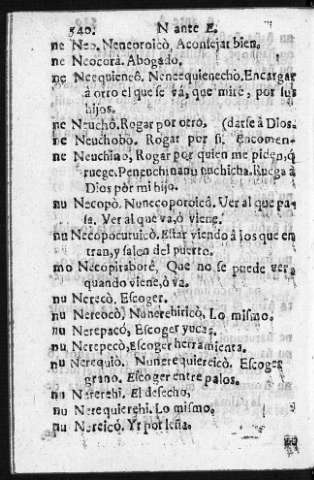 540. N ante E.
ne Neo. Neneoroicò, Aconsejar bien.
ne Neocorà. Abogado.
ne Neequieneô. Neneequienechò. Encargar
à otro el que se và, que mire, por sus
hijos.
ne Neuchô. Rogar por otro, (darse à Dios.
ne Neuchobò. Rogar por si. Encomen-
ne Neuchino, Rogar por quien me piden, q̃
ruege. Penenchinanu Ruega à
Dios por mi hijo.
nu Necopò. Nunecoporoicô. Ver al que pa-
sa. Ver al que va, ò viene.
nu Necopocuruicò. Estar viendo à los que en
tran, y salen del puerto.
mo Necopiraborè, Que no se puede ver,
quando viene, ò va.
nu Nerecò, Escoger.
nu Nereocò, Nunerehiricò, Lo mismo.
nu Nerepacó, Escoger yucas.
nu Nerepecò, Escoger herramienta.
nu Nerequiò. Nunerequiereicò. Escoger
grano. Escoger entre palos.
nu Narerehi. El desecho,
nu Nerequierehi. Lo mismo.
nu Nereicò. Yr por leña.